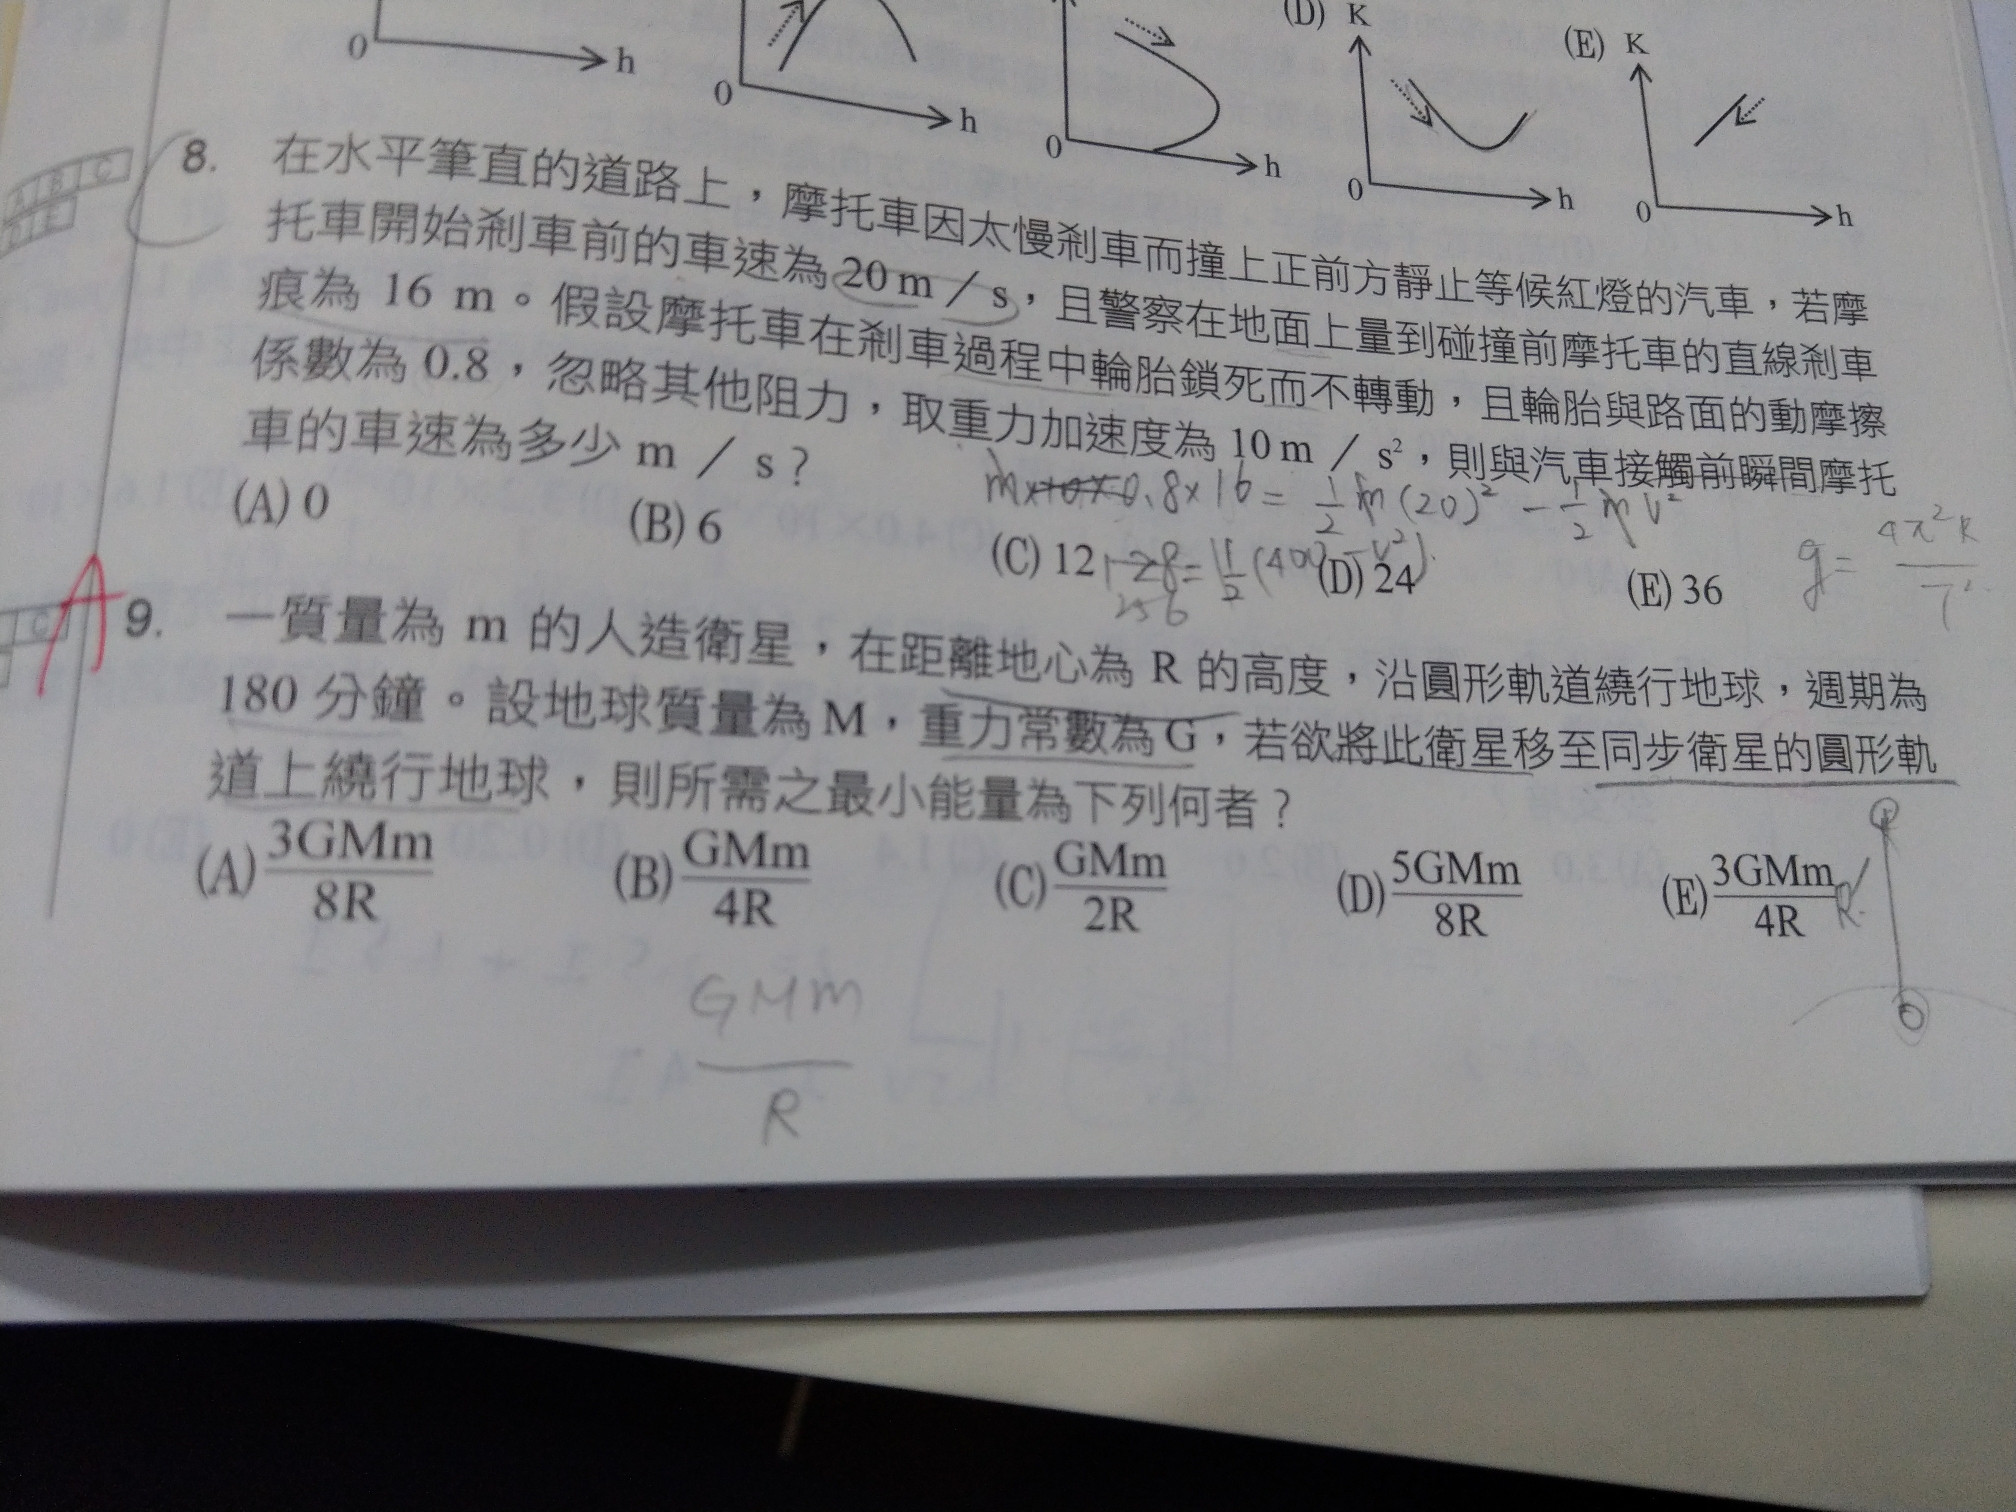 0 h
0 h
0 h
(D) K
0 h
(E) K
0 h
8. 在水平筆直的道路上，摩托車因太慢剎車而撞上正前方靜止等候紅燈的汽車，若摩
托車開始剎車前的車速為 20 m / s，且警察在地面上量到碰撞前摩托車的直線剎車
痕為 16 m。假設摩托車在剎車過程中輪胎鎖死而不轉動，且輪胎與路面的動摩擦
係數為 0.8，忽略其他阻力，取重力加速度為 10 m / s²，則與汽車接觸前瞬間摩托
車的車速為多少 m / s？
m×10×0.8×16 = ½ m (20)² - ½ m v²
(A) 0 (B) 6 (C) 12 (D) 24 (E) 36
128 = ½ (400 - v²)
256
g = 4π²R / T²
A B C
D E
A
C
9. 一質量為 m 的人造衛星，在距離地心為 R 的高度，沿圓形軌道繞行地球，週期為
180 分鐘。設地球質量為 M，重力常數為 G，若欲將此衛星移至同步衛星的圓形軌
道上繞行地球，則所需之最小能量為下列何者？
(A) 3GMm / 8R (B) GMm / 4R (C) GMm / 2R (D) 5GMm / 8R (E) 3GMm / 4R
R
GMm / R